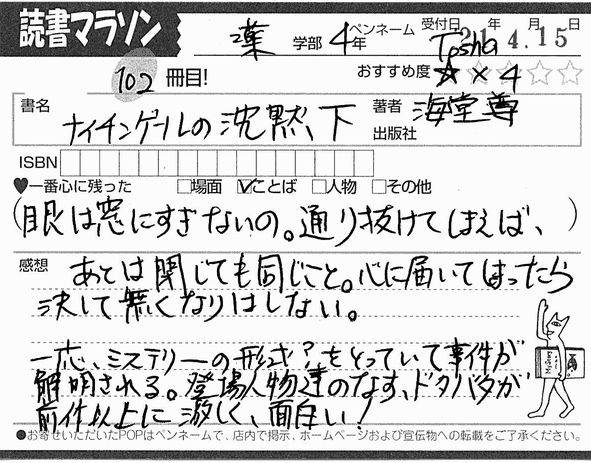 読書マラソン
薬 学部 4年 ペンネーム Tosha 受付日 21年 4月 15日
102 冊目!
おすすめ度 ☆×4 ☆☆☆☆
書名 ナイチンゲールの沈黙、下
著者 海堂尊
出版社
ISBN
♥一番心に残った □場面 ☑ことば □人物 □その他
(眼は窓にすぎないの。通り抜けてしまえば、)
感想 あとは閉じても同じこと。心に届いてしまったら
決して無くなりはしない。
一応、ミステリーの形式?をとっていて事件が
解明される。登場人物達のなす、ドタバタが
前作以上に激しく、面白い!
●お寄せいただいたPOPはペンネームで、店内で掲示、ホームページおよび宣伝物への転載をご了承ください。